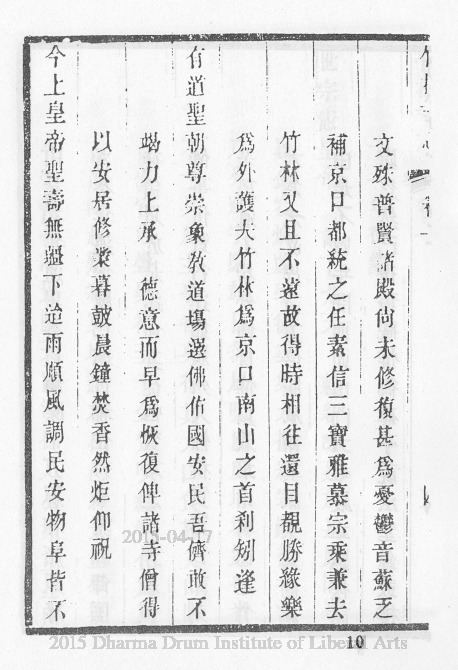 竹林寺志 卷一
文殊普賢諸殿尚未修復甚爲憂鬱音蘇乏
補京口都統之任素信三寶雅慕宗乘兼去
竹林又且不遠故得時相往還目覩勝緣樂
爲外護夫竹林爲京口南山之首刹矧逢
有道聖朝尊崇象教道場選佛佑國安民吾儕敢不
竭力上承 德意而早爲恢復俾諸寺僧得
以安居修業暮皷晨鐘焚香然炬仰祝
今上皇帝聖壽無疆下迨雨順風調民安物阜皆不
10
2015-04-17
2015 Dharma Drum Institute of Liberal Arts